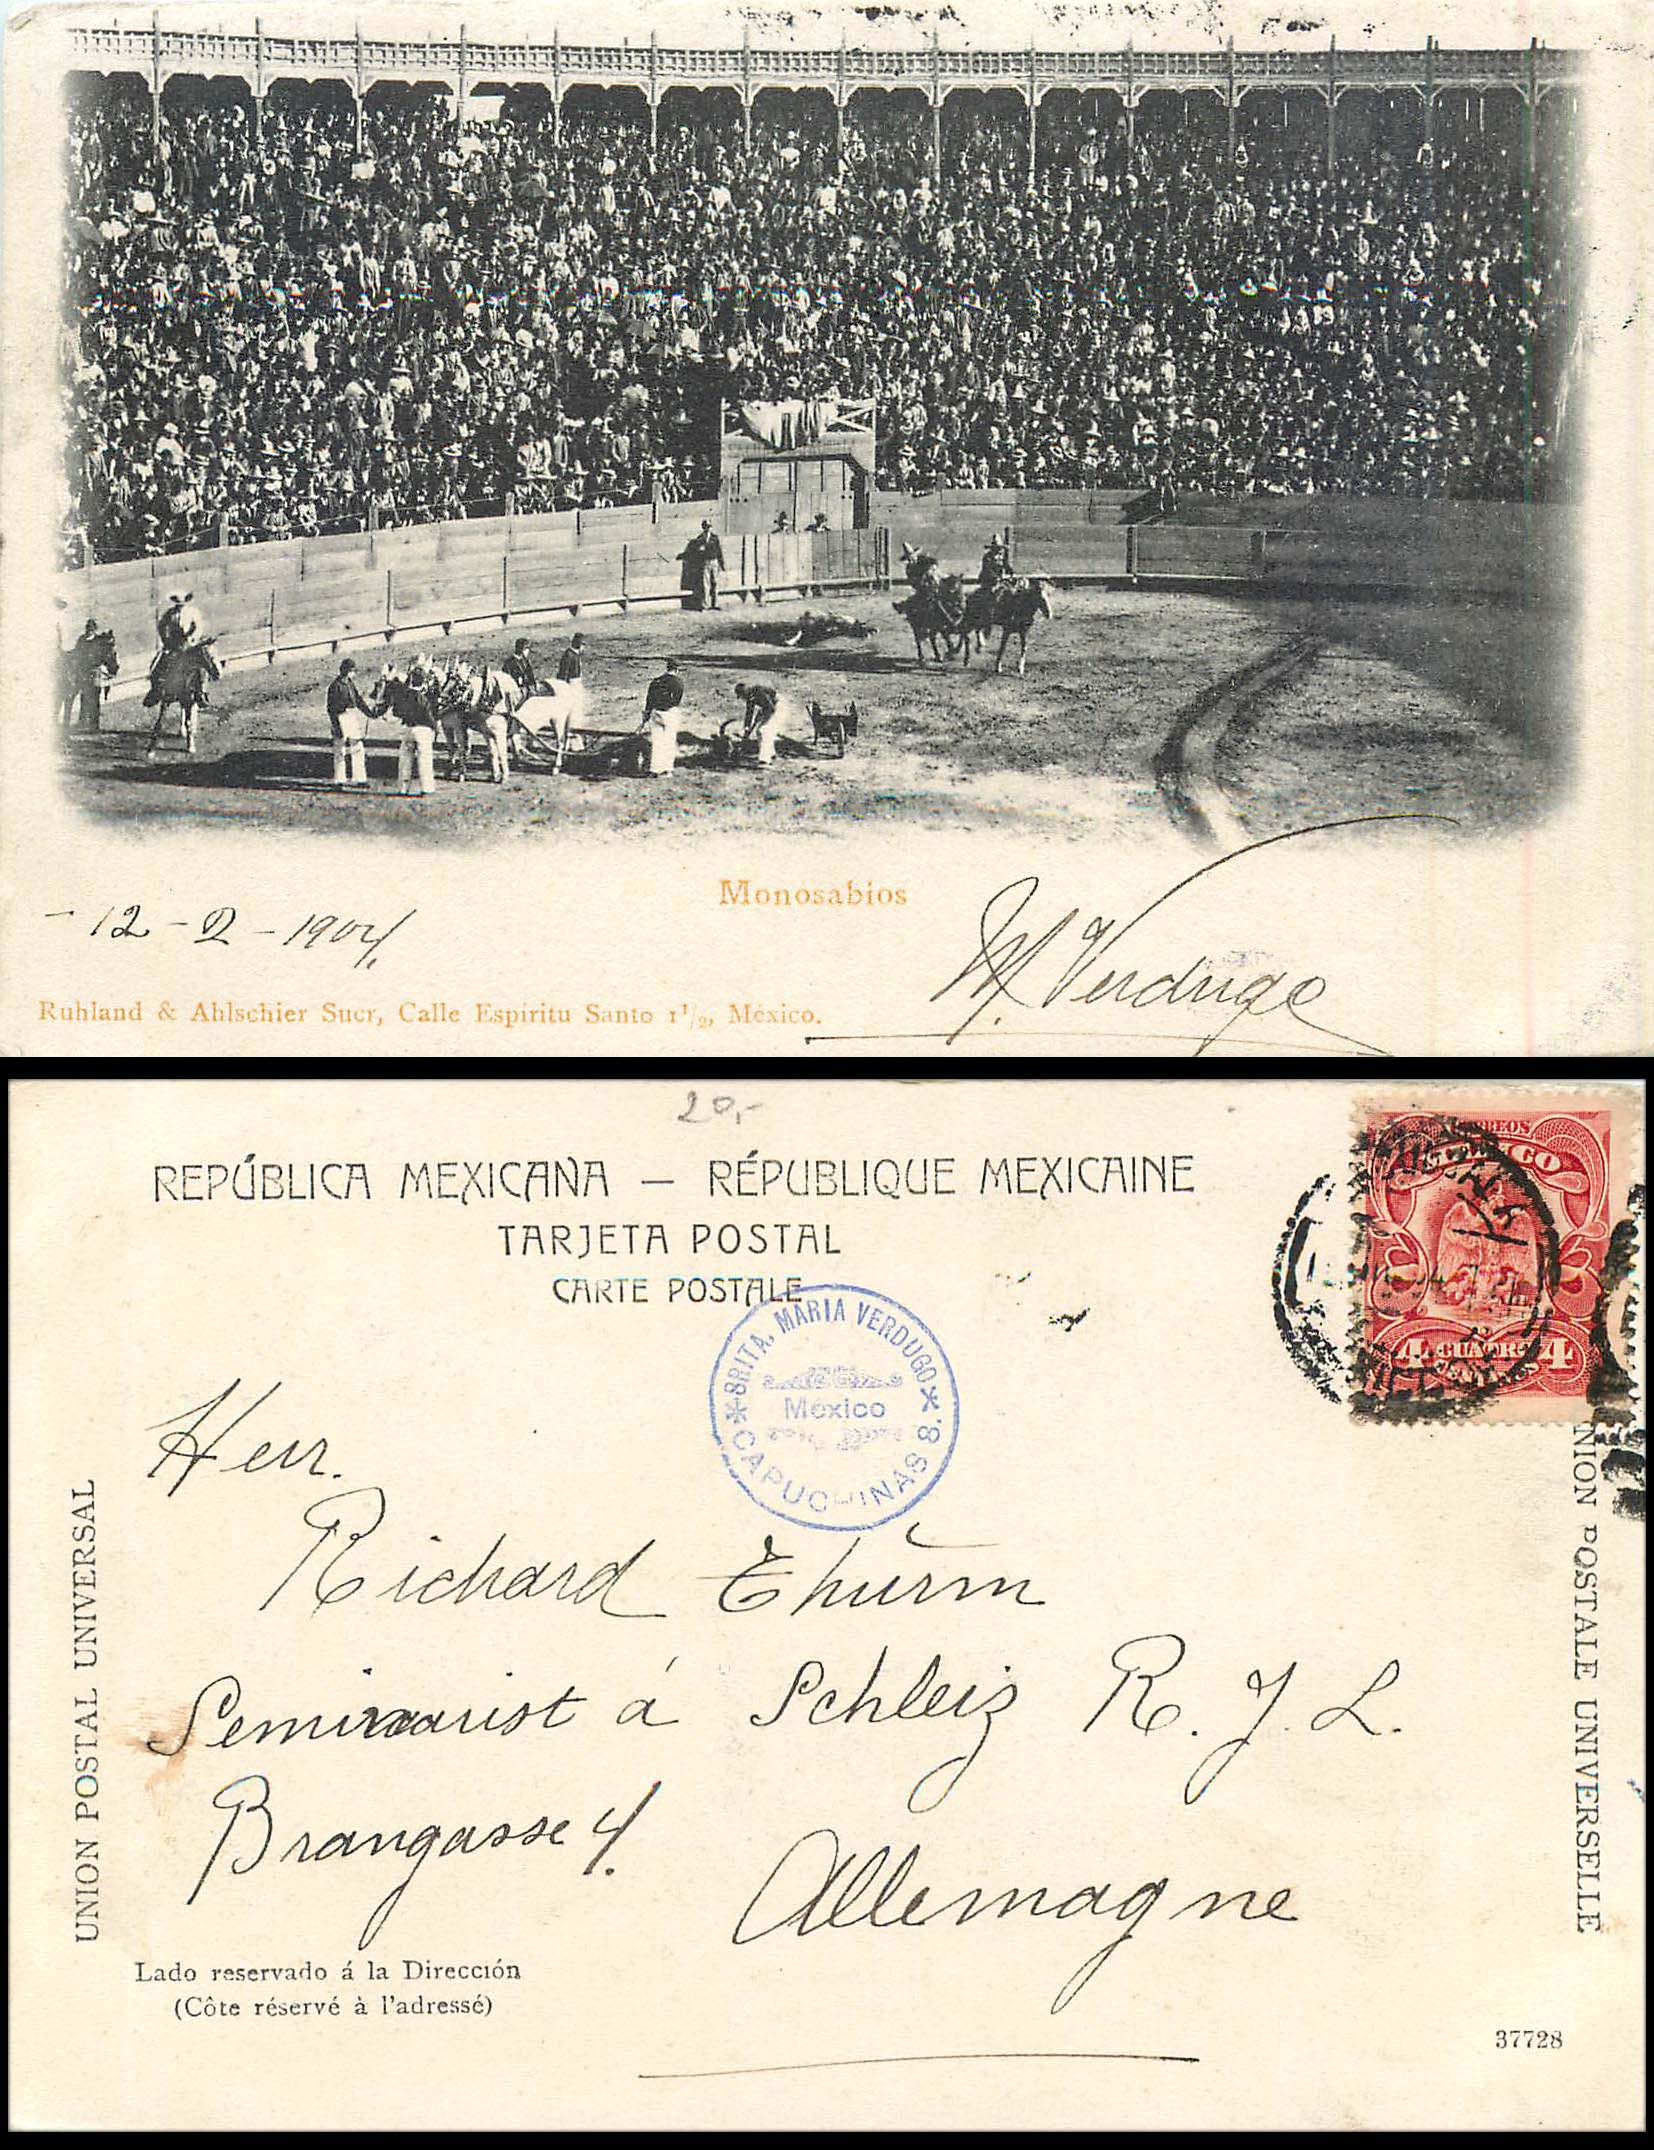 Monosabios
- 12 - 2 - 1904.
M. Verdugo
Ruhland & Ahlschier Sucr, Calle Espíritu Santo 1 1/2, México.
20,-
REPÚBLICA MEXICANA — RÉPUBLIQUE MEXICAINE
TARJETA POSTAL
CARTE POSTALE
CORREOS
MEXICO
4 CUATRO 4
CENTAVOS
* SRITA. MARIA VERDUGO *
Mexico
CAPUCHINAS 8.
Herr.
Richard Thurm
Seminarist á Schleiz R. J. L.
Brangasse 4.
Allemagne
UNION POSTAL UNIVERSAL
UNION POSTALE UNIVERSELLE
Lado reservado á la Dirección
(Côte réservé à l'adressé)
37728